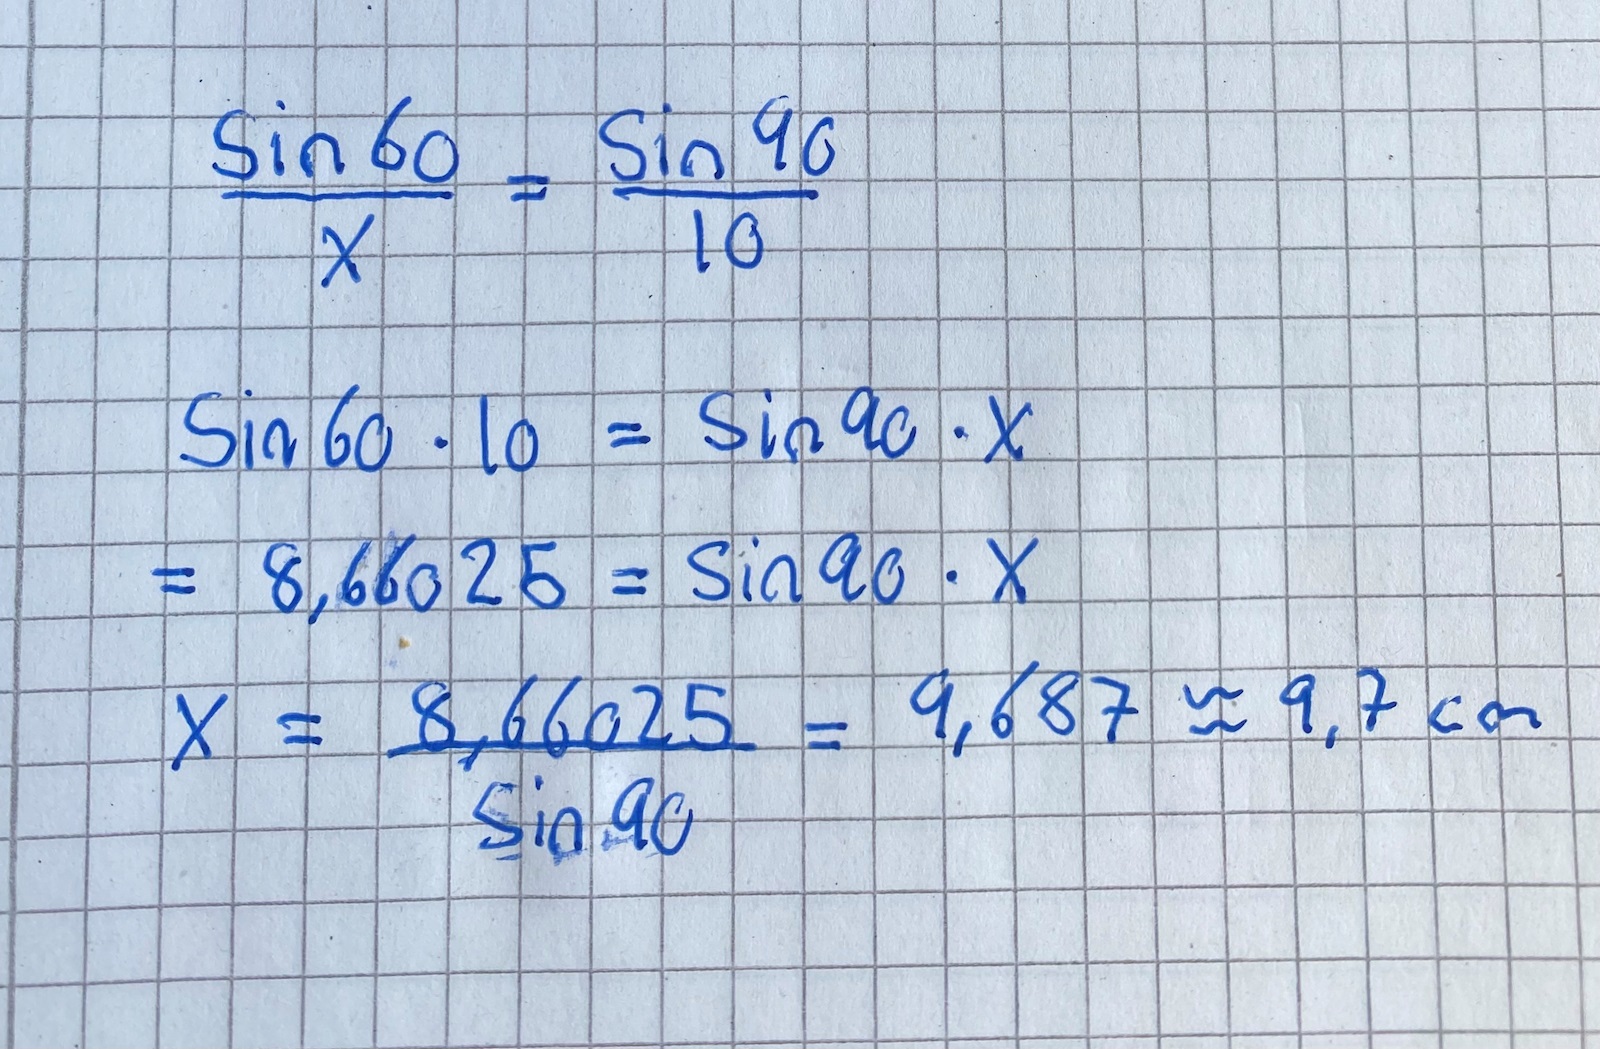 Sin 60 / x = Sin 90 / 10
Sin 60 · 10 = Sin 90 · x
= 8,66025 = Sin 90 · x
x = 8,66025 / Sin 90 = 9,687 ≈ 9,7 cm